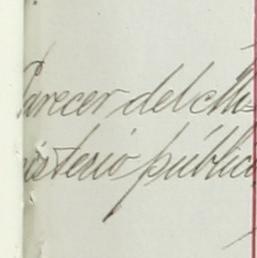 Parecer del Mi-
nisterio público